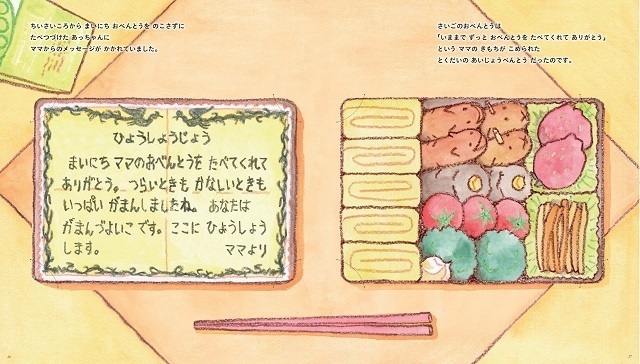 ちいさいころから まいにち おべんとうを のこさずに
たべつづけた あっちゃんに
ママからのメッセージが かかれていました。
さいごのおべんとうは
「いままで ずっと おべんとうを たべてくれて ありがとう」
という ママの きもちが こめられた
とくだいの あいじょうべんとう だったのです。
ひょうしょうじょう
まいにち ママのおべんとうを たべてくれて
ありがとう。 つらいときも かなしいときも
いっぱい がまんしましたね。 あなたは
がまんづよいこ です。 ここに ひょうしょう
します。 ママより